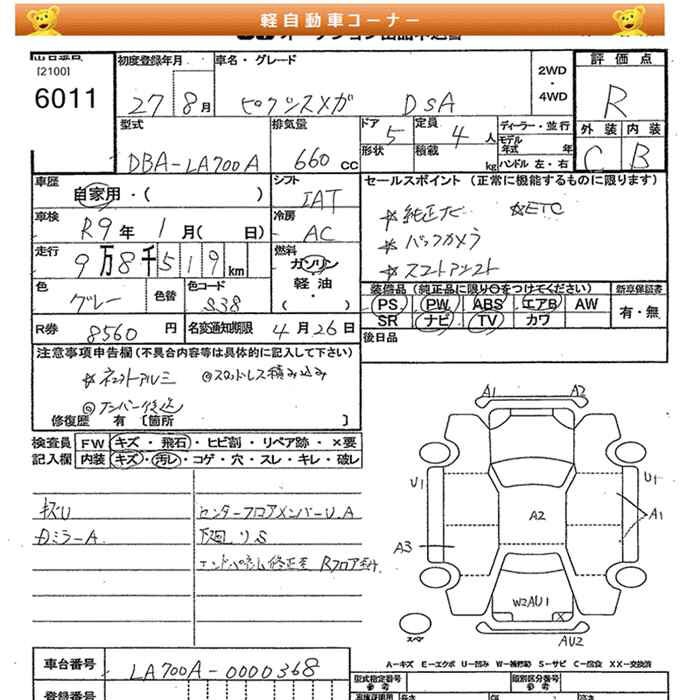 軽自動車コーナー
[2100]
6011
初度登録年月
27 8月
車名・グレード
ピクシスメガ DSA
2WD
・
4WD
評価点
R
外装 内装
C B
型式
DBA-LA700A
排気量
660 cc
ドア
5
形状
定員
4 人
積載
kg
ディーラー・並行
モデル年式 年
ハンドル 左・右
車歴
自家用・( )
シフト
IAT
車検
R9年 1月( 日)
冷房
AC
走行
9万8千519km
燃料
ガソリン
軽油
・
( )
色
グレー
色替
色コード
S38
R券 8560 円
名変通知期限 4月26日
セールスポイント (正常に機能するものに限ります)
☆純正ナビ ☆ETC
☆バックカメラ
☆スマートアシスト
装備品 (純正品に限り○をつけてください)
新車保証書
PS PW ABS エアB AW
SR ナビ TV カワ
有・無
後日品
注意事項申告欄 (不具合内容等は具体的に記入して下さい)
☆ネット アルミ ◎スタッドレス積み込み
◎ナンバー後送
修復歴 有 [箇所 ]
検査員 FW キズ・飛石・ヒビ割・リペア跡・×要
記入欄 内装 キズ・汚レ・コゲ・穴・スレ・キレ・破レ
キズU
Dミラー A
センターフロアメンバー U.A
下廻りS
A1 A2
U1 U1
A1
A2
A3
W2AU1
X
AU2
スペア
A-キズ E-エクボ U-凹み W-補修跡 S-サビ C-腐食 XX-交換済
車台番号 LA700A-0000368
登録番号
型式指定番号
参考
類別区分番号
参考